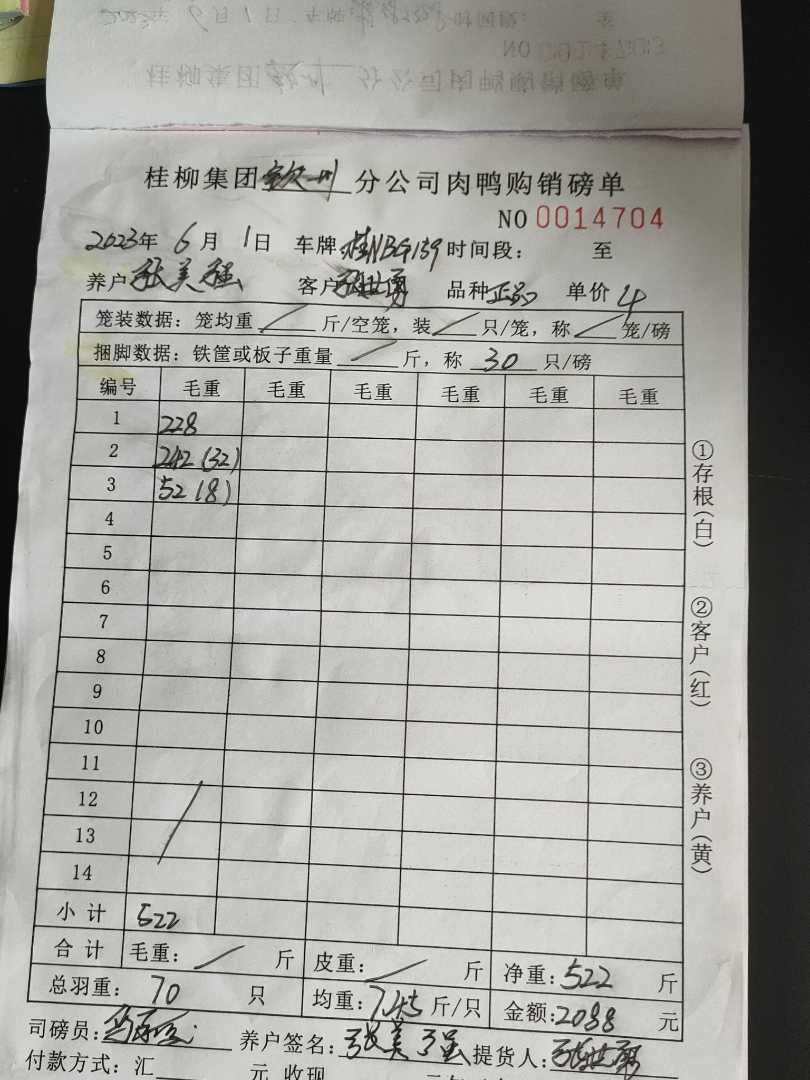 桂柳集团钦州分公司肉鸭购销磅单
NO 0014704
2023年 6月 1日 车牌桂NBG159 时间段: 至
养户张美强 客户张世勇 品种正品 单价4
笼装数据: 笼均重/斤/空笼, 装/只/笼, 称/笼/磅
捆脚数据: 铁筐或板子重量/斤, 称 30 只/磅
编号 毛重 毛重 毛重 毛重 毛重 毛重
1 228
2 242(32)
3 52(8)
4
5
6
7
8
9
10
11
12
13
14
小计 522
合计 毛重: / 斤 皮重: / 斤 净重:522 斤
总羽重: 70 只 均重:7.45斤/只 金额:2088元
司磅员: 养户签名:张美强 提货人:张世勇
付款方式:汇 元 收现
①存根(白)
②客户(红)
③养户(黄)